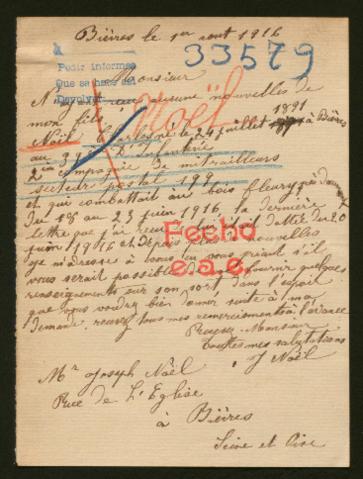 Bièvres le 1er aout 1916
33579
Pedir informes
Que se hace del
Devolver
Monsieur
N'ayant reçu aucune nouvelles de
mon fils
Noël
1891
Noël Charles né le 24 juillet à Bièvres
au 31 D'Infanterie
2me compagnie de mitrailleurs
secteur postal 199
et qui combattait au bois fleury
du 18 au 23 juin 1916, la dernière
lettre que j'ai reçu était daté du 20
juin 1916 et Depuis nouvelles
je m'adresse à vous en vous priant s'il
vous serait possible de me fournir quelques
renseignements sur son sort dans l'espoir
que vous voudrez bien donner suite à ma
demande, recevez tous mes remerciements à l'avance
Fecho
e.a.e.
Recevez Monsieur
Toutes mes salutations
J Noël
Mr Joseph Noël
Rue de L'Eglise
à Bièvres
Seine et Oise